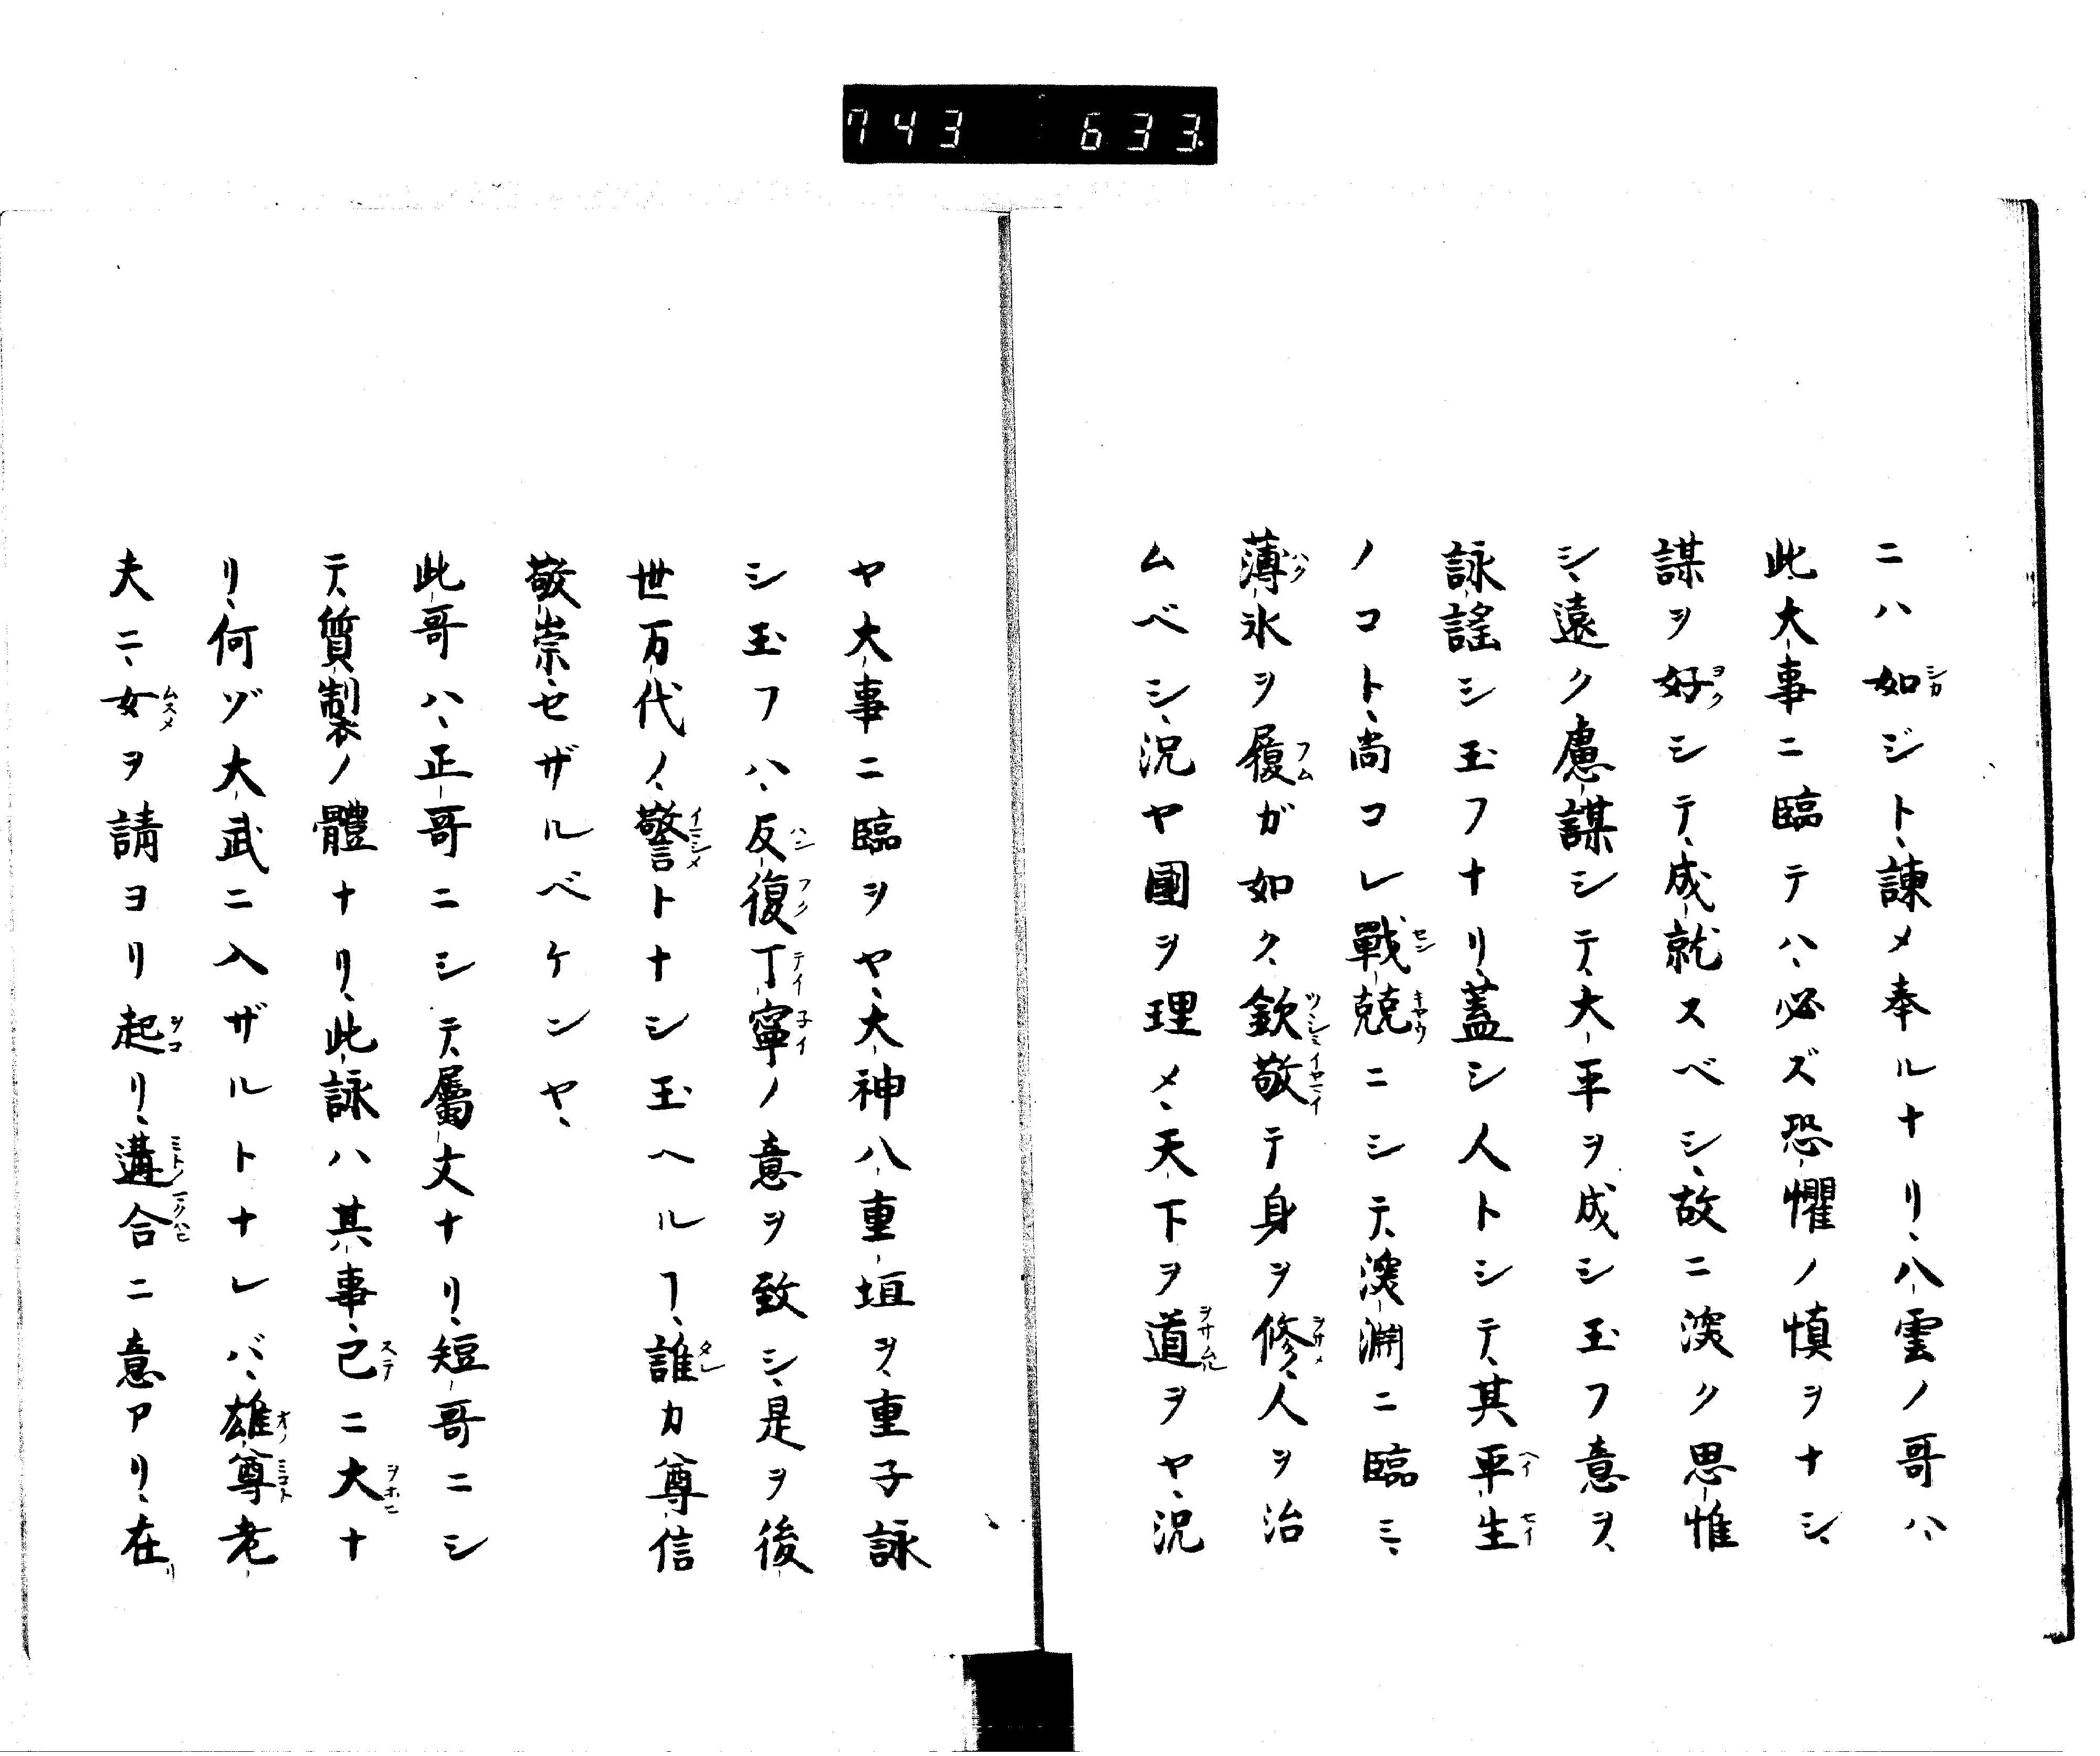 743 633
ニハ如ジト、諌メ奉ルナリ、八雲ノ哥ハ、
此大事ニ臨テハ、必ズ恐懼ノ慎ヲナシ、
謀ヲ好シテ、成就スベシ、故ニ深ク思惟
シ、遠ク慮謀シテ、大平ヲ成シ玉フ意ヲ、
詠謠シ玉フナリ、蓋シ人トシテ、其平生
ノコト、尚コレ戰兢ニシテ、深淵ニ臨ミ、
薄氷ヲ履ガ如ク、欽敬テ身ヲ修、人ヲ治
ムベシ、況ヤ國ヲ理メ、天下ヲ道ヲヤ、況
ヤ大事ニ臨ヲヤ、大神八重垣ヲ、重子詠
シ玉フハ、反復丁寧ノ意ヲ致シ、是ヲ後
世万代ノ、警トナシ玉ヘルヿ、誰カ尊信
敬崇セザルベケンヤ、
此哥ハ、正哥ニシテ、屬文ナリ、短哥ニシ
テ、質製ノ體ナリ、此詠ハ其事、已ニ大ナ
リ、何ヅ大武ニ入ザルトナレバ、雄尊老
夫ニ、女ヲ請ヨリ起リ、遘合ニ意アリ、在